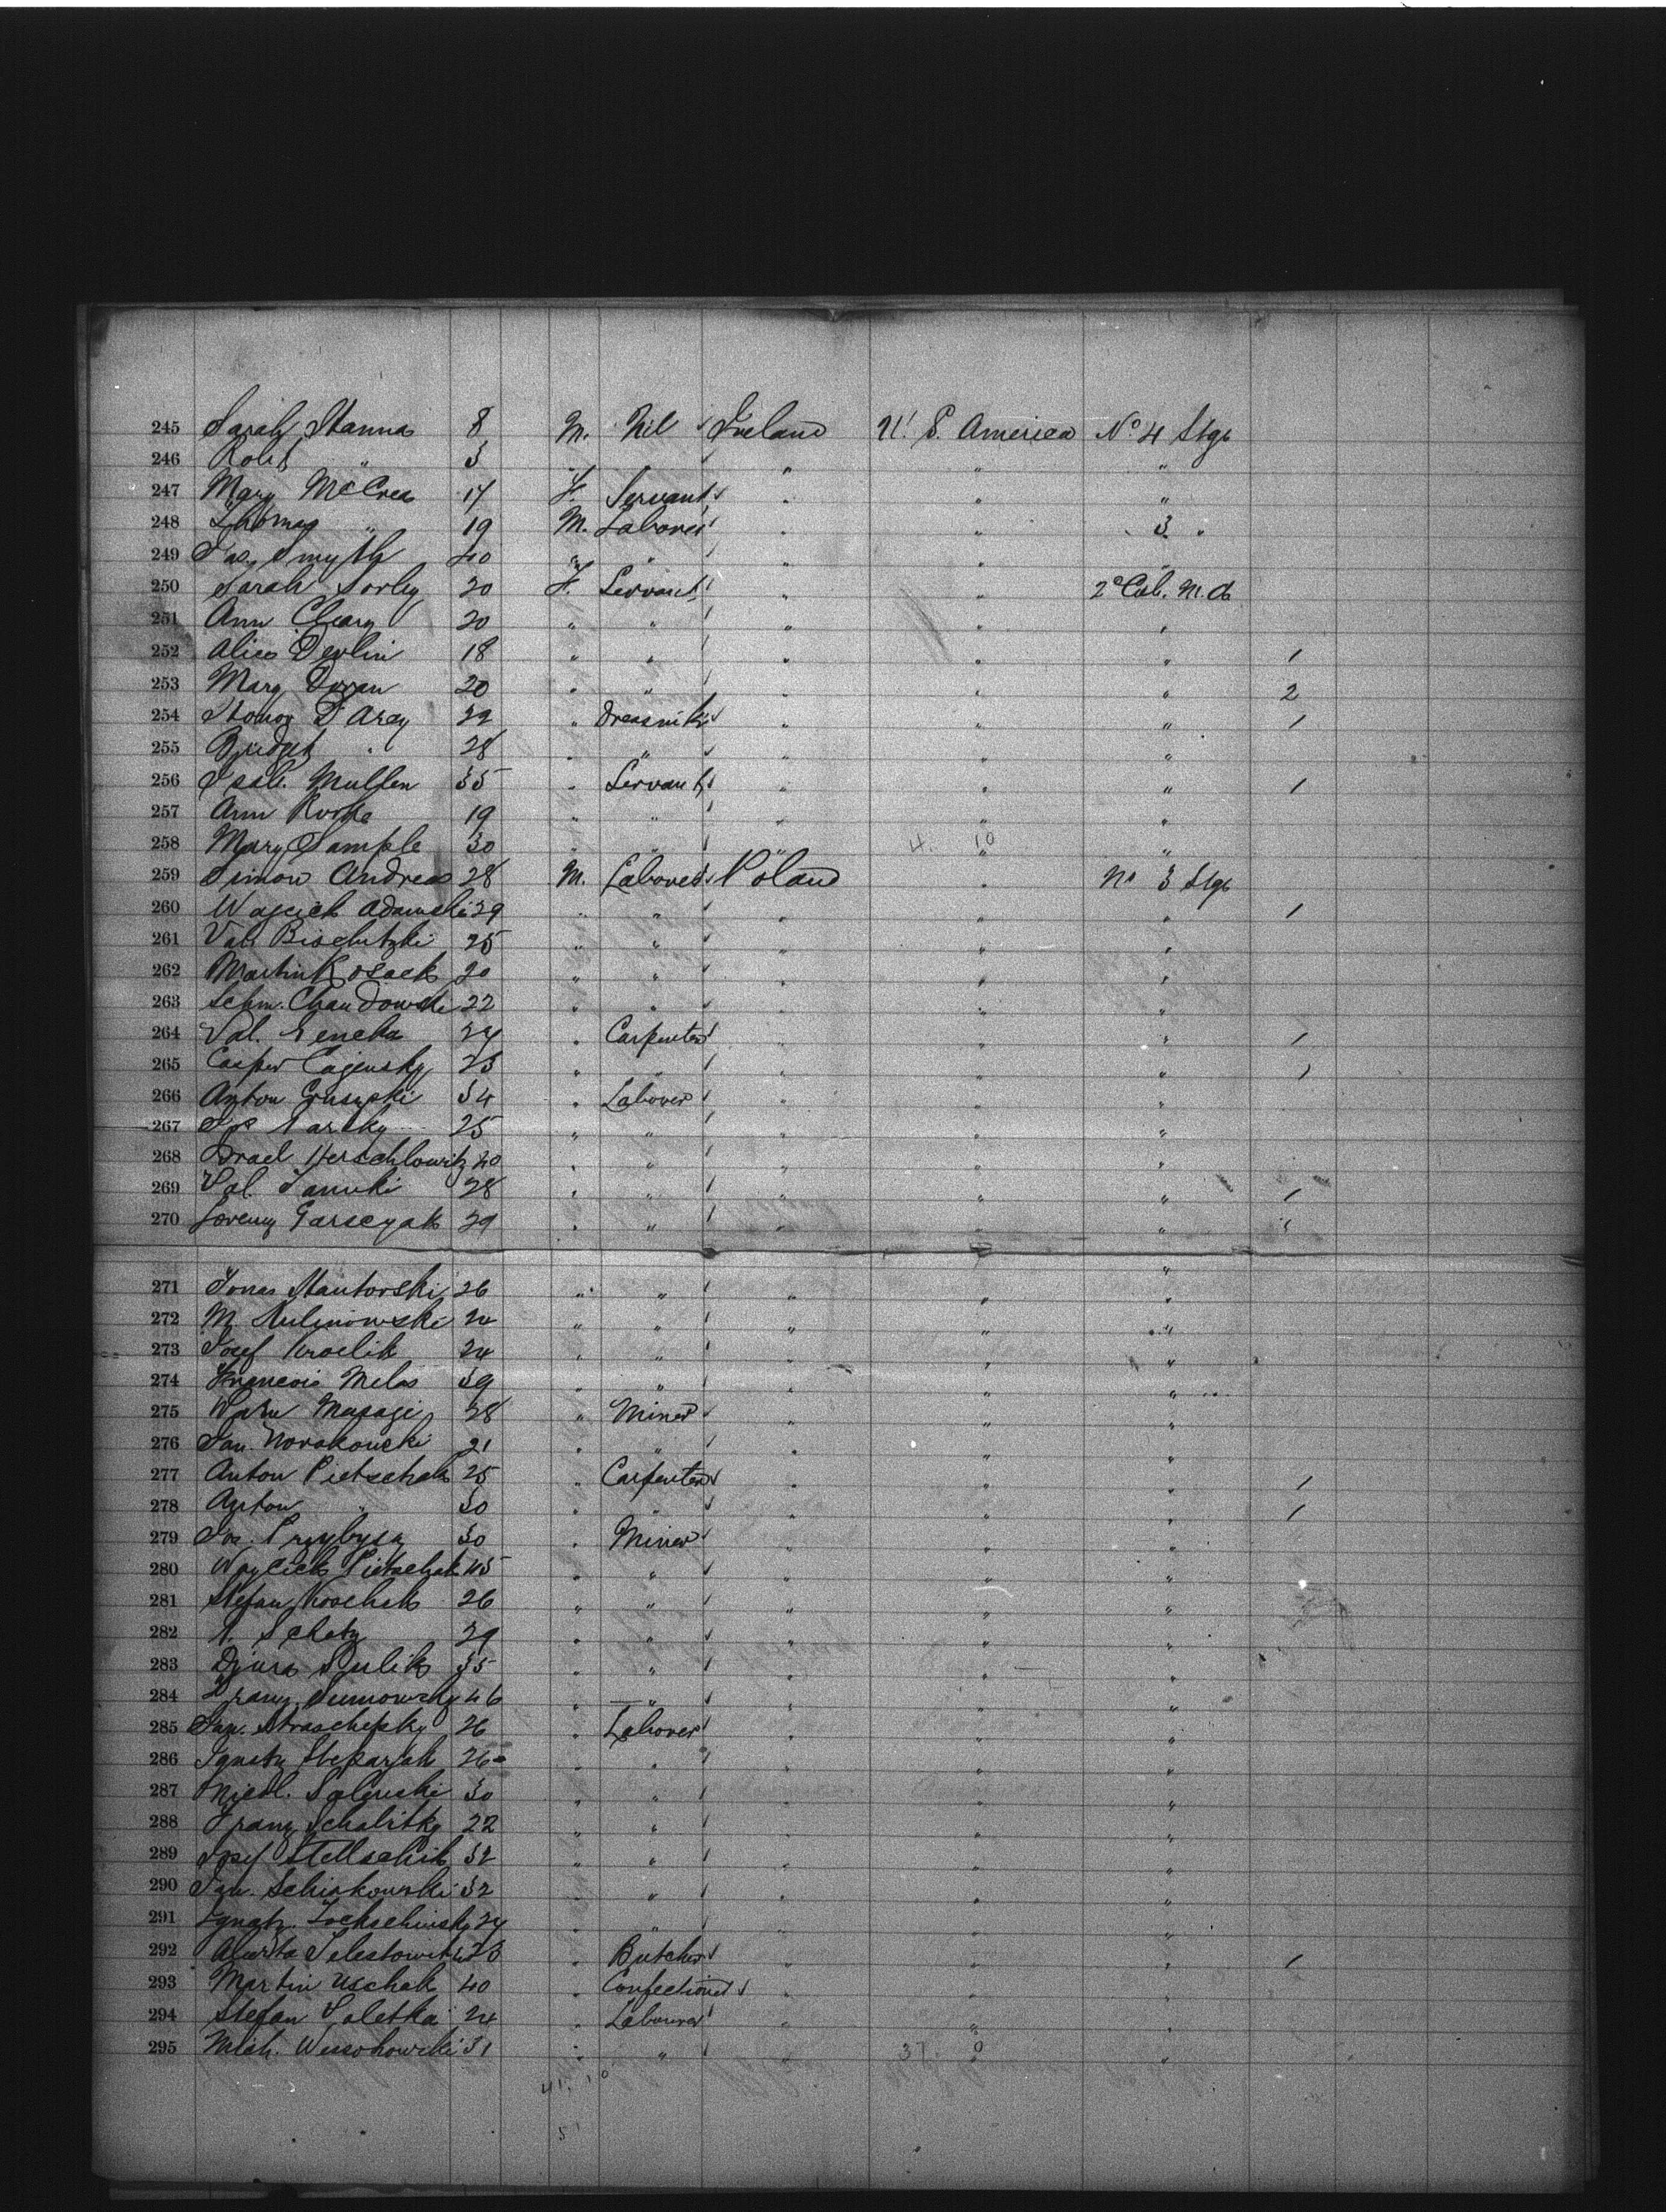 245 Sarah Hanna 8 M. Nil Ireland U. S. America No 4 Stge
246 Robt " 3 " " " " "
247 Mary McCrea 17 F. Servant " " "
248 Thomas " 19 M. Labourer " " 3 "
249 Jas. Smyth 40 " " " " "
250 Sarah Sorley 20 F. Servant " " 2d Cab. M. d
251 Ann Cleary 20 " " " " "
252 Alice Devlin 18 " " " " " 1
253 Mary Doran 20 " " " " " 2
254 Honor D'Arcy 32 " Dressmkr " " " 1
255 Bridget " 28 " " " " "
256 Isab. Mullen 35 " Servant " " " 1
257 Ann Rorke 19 " " " " "
258 Mary Sample 30 " " " " "
4. 10
259 Simon Andreas 28 M. Labourer Poland " No 3 Stge
260 Wojciech Adamski 29 " " " " " 1
261 Val. Bischitzki 25 " " " " "
262 Martin Kosack 20 " " " " "
263 Schm. Chandowski 22 " " " " "
264 Val. 24 " Carpenter " " " 1
265 Casper Cajensky 23 " " " " " 1
266 Anton 34 " Labourer " " "
267 Jos 25 " " " " "
268 Israel Herschlowitz 40 " " " " "
269 Val. Janucki 28 " " " " " 1
270 Lorenz Garsczak 29 " " " " "
271 Jonas Mantorski 26 " " " " "
272 M. Kulinowski 24 " " " " "
273 Josef Krolik 24 " " " " "
274 Francois Melos 39 " " " " "
275 28 " Miner " " "
276 Jan. Novakowski 21 " " " " "
277 Anton Pietschak 25 " Carpenter " " " 1
278 Anton " 30 " " " " " 1
279 Jos. Przybysz 30 " Miner " " "
280 Woycick Pietschak 45 " " " " "
281 Stefan Koschak 26 " " " " "
282 Schatz 29 " " " " "
283 Djura Sulik 35 " " " " "
284 Franz Sumowsky 46 " " " " "
285 Jan. Straschefsky 26 " Labourer " " "
286 Ignatz Stekarjak 26 " " " " "
287 Michl. Salinski 30 " " " " "
288 Franz Schalitky 22 " " " " "
289 Josef Stellschik 32 " " " " "
290 Jan. Schiskowski 32 " " " " "
291 Ignatz. Tockschinsky 24 " " " " "
292 23 " Butcher " " " 1
293 Martin Uschak 40 " Confectioner " " "
294 Stefan Saletka 24 " Labourer " " "
295 Mich. Wessohowski 31 " " " " "
37 0
41. 10
51